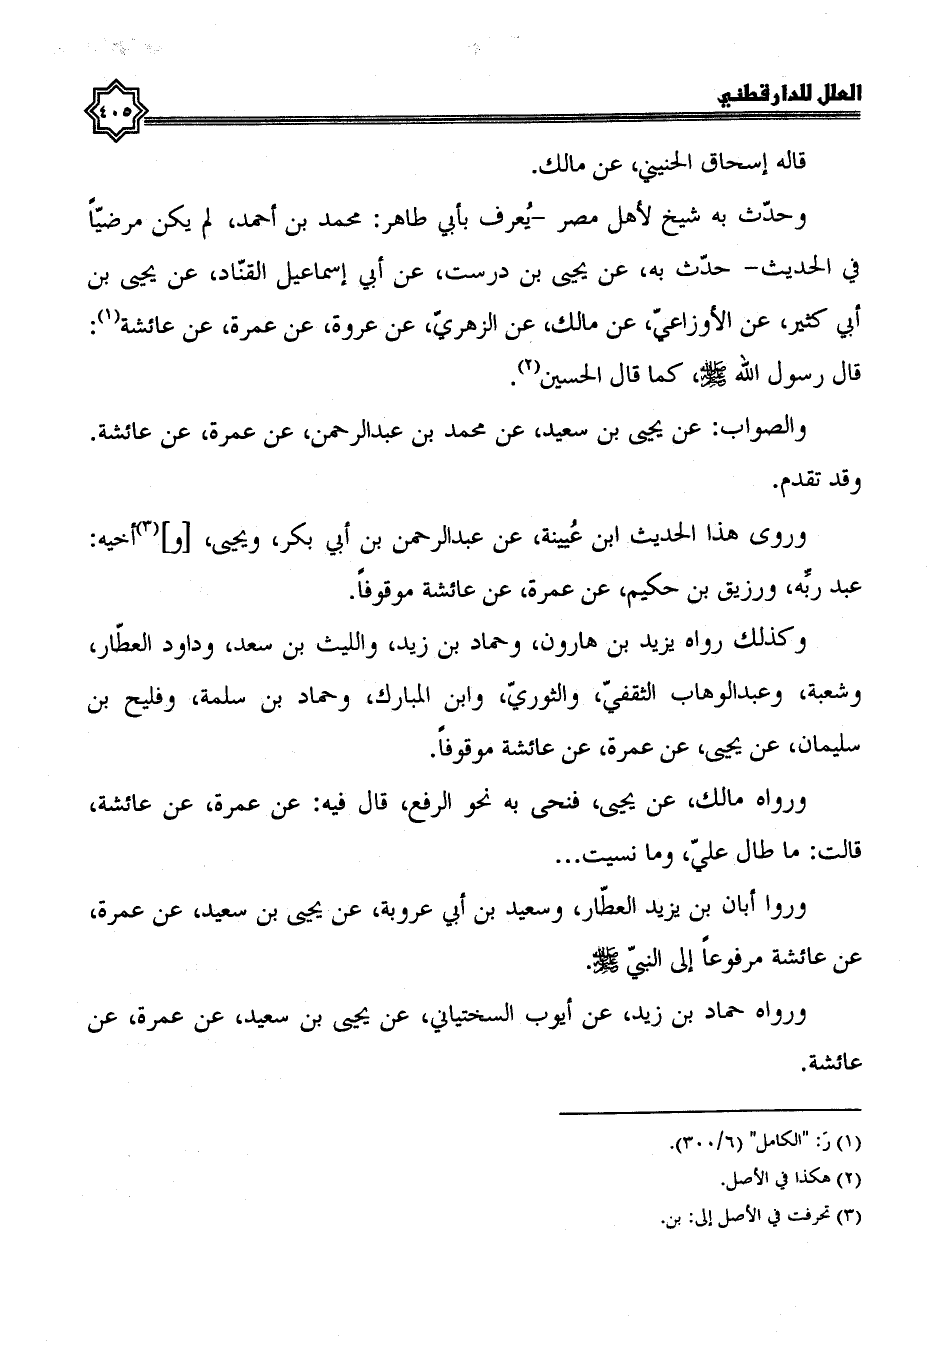 العلل للدارقطني
٤٠٥
قاله إسحاق الحنيني، عن مالك.
وحدّث به شيخ لأهل مصر –يُعرف بأبي طاهر: محمد بن أحمد، لم يكن مرضيّاً
في الحديث– حدّث به، عن يحيى بن درست، عن أبي إسماعيل القنّاد، عن يحيى بن
أبي كثير، عن الأوزاعيّ، عن مالك، عن الزهريّ، عن عروة، عن عمرة، عن عائشة(١):
قال رسول الله ﷺ، كما قال الحسين(٢).
والصواب: عن يحيى بن سعيد، عن محمد بن عبدالرحمن، عن عمرة، عن عائشة.
وقد تقدم.
وروى هذا الحديث ابن عُيينة، عن عبدالرحمن بن أبي بكر، ويحيى، [و](٣)أخيه:
عبد ربِّه، ورزيق بن حكيم، عن عمرة، عن عائشة موقوفاً.
وكذلك رواه يزيد بن هارون، وحماد بن زيد، والليث بن سعد، وداود العطّار،
وشعبة، وعبدالوهاب الثقفيّ، والثوريّ، وابن المبارك، وحماد بن سلمة، وفليح بن
سليمان، عن يحيى، عن عمرة، عن عائشة موقوفاً.
ورواه مالك، عن يحيى، فنحى به نحو الرفع، قال فيه: عن عمرة، عن عائشة،
قالت: ما طال عليّ، وما نسيت...
وروا أبان بن يزيد العطّار، وسعيد بن أبي عروبة، عن يحيى بن سعيد، عن عمرة،
عن عائشة مرفوعاً إلى النبيّ ﷺ.
ورواه حماد بن زيد، عن أيوب السختياني، عن يحيى بن سعيد، عن عمرة، عن
عائشة.
(١) رَ: "الكامل" (٣٠٠/٦).
(٢) هكذا في الأصل.
(٣) تحرفت في الأصل إلى: بن.